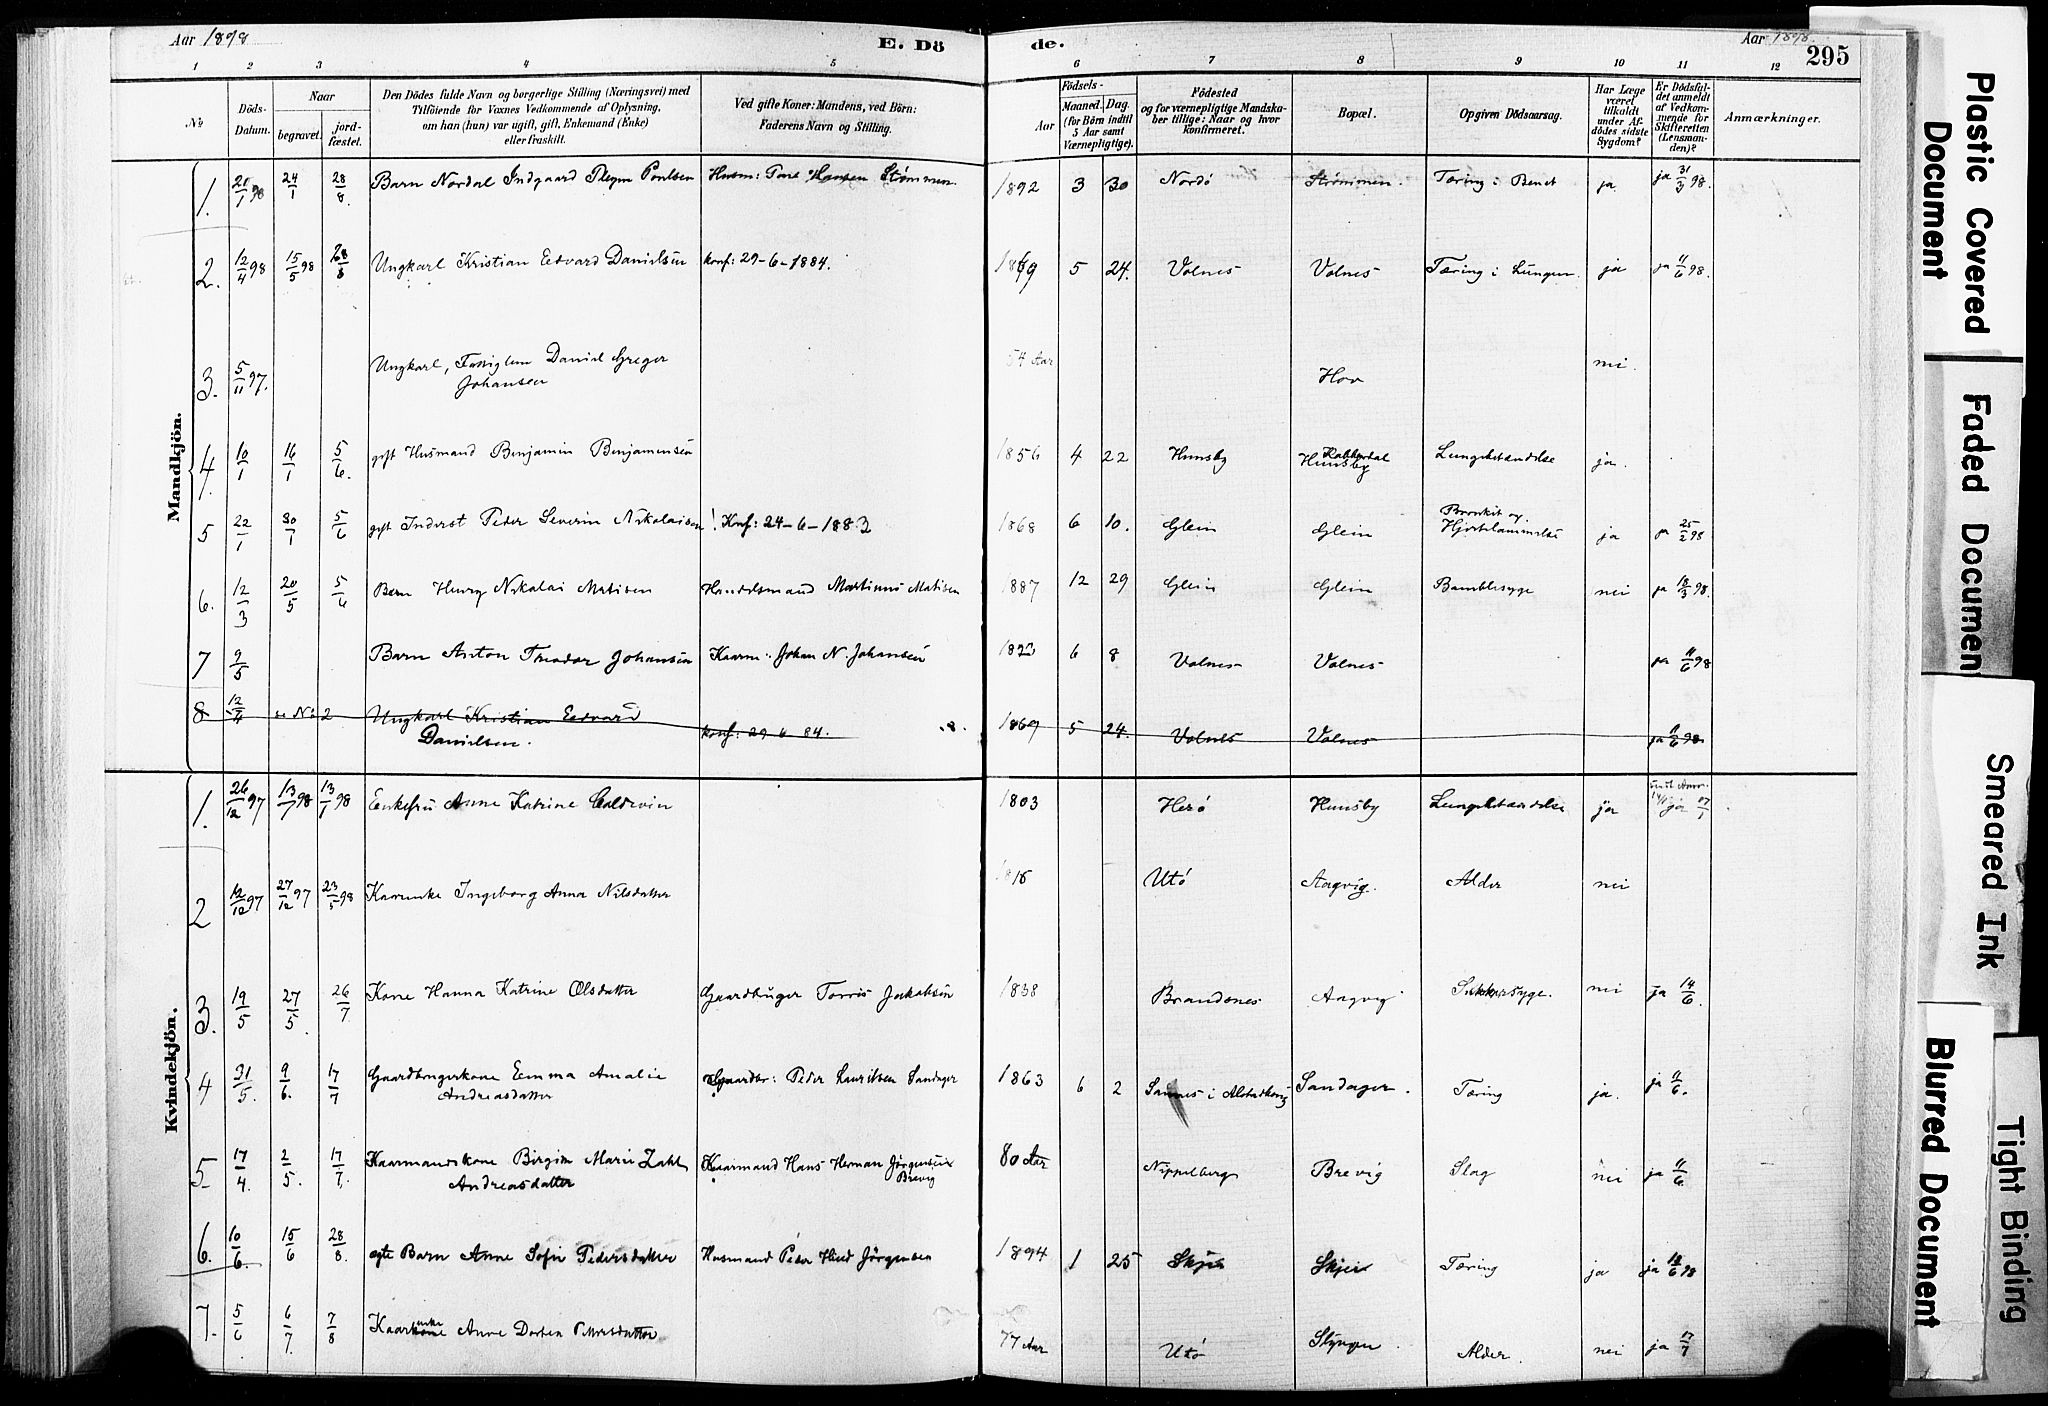 Aar 1898
E. Dö
de.
Aar 1898.
295
1 2 3 4 5 6 7 8 9 10 11 12
No
Döds-
Datum.
Naar
begravet.
jord-
fæstet.
Den Dödes fulde Navn og borgerlige Stilling (Næringsvei) med
Tilföiende for Voxnes Vedkommende af Oplysning,
om han (hun) var ugift, gift, Enkemand (Enke)
eller fraskilt.
Ved gifte Koner: Mandens, ved Börn:
Faderens Navn og Stilling.
Födsels-
Aar
Maaned.
Dag.
(for Börn indtil
5 Aar samt
Værnepligtige).
Födested
og for værnepligtige Mandska-
ber tillige: Naar og hvor
konfirmeret.
Bopæl.
Opgiven Dödsaarsag.
Har Læge
været
tilkaldt
under Af-
dödes sidste
Sygdom?
Er Dödsfal-
det anmeldt
af Vedkom-
mende for
Skifteretten
(Lensman-
den)?
Anmærkninger.
Mandkjön.
1. 24/1 28/8. Barn Nordal Indgaard Poulsen Husm: Hansen Strømmen. 1892 3 30 Nordö Strömmen. Tæring i Benet ja ja 31/3 98.
2. 12/4 98 15/5 98 28/8 Ungkarl Kristian Edvard Danielsen konf: 29-6-1884. 1869 5 24. Volnes Volnes Tæring i Lungen ja ja 11/6 98.
3. 5/11 97. Ungkarl, Daniel Greger
Johansen
54 Aar Hov nei.
4. 10/1 16/1 5/6. gift Husmand Benjamin Benjaminsen 1856 4 22 Hunsby
Hunsby Lungebetændelse ja.
5 22/1 30/1 5/6 gift Inderst Peder Severin Nikolaisen ! Konf: 24-6-1883 1868 6 10. Glein Glein Bronkit og
Hjertelammelse ja ja 25/2 98
6. 12/3 20/5 5/6 Barn Henry Nikolai Matisen Handelsmand Martinus Matisen 1887 12 29 Glein Glein nei ja 18/3 98.
7 9/5 Barn Anton Theodor Johansen Kaarm: Johan N. Johansen 6 8 Volnes Volnes ja 11/6 98
8 12/4 se No 2 Ungkarl Kristian Edvard
Danielsen. konf: 29 6 84. 1869 5 24. Volnes Volnes ja 11/6 98
Kvindekjön.
1. 26/12 97 13/1 98 13/1 98 Enkefru Anne Katrine Coldevin 1803 Herö Hunsby Lungebetændelse ja
2 12/12 97 27/12 97 23/5 98 Kaarenke Ingeborg Anna Nilsdatter Utö Aagvig. Alder nei
3. 19/5 27/5. 26/7 Kone Hanna Katrine Olsdatter Gaardbruger Torris Jakobsen 1838 Brandsnes Aagvig Sukkersyge. nei ja 14/6.
4 31/5. 9/6. 17/7 Gaardbrugerkone Emma Amalie
Andreasdatter Gaardbr: Peder Lauritsen Sandager 1863 6 2 Sannes i Alstadhoug Sandager. Tæring ja. ja 11/6.
5 17/4. 2/5. 17/7. Kaarmandskone Birgitte Marie Zahl
Andreasdatter Kaarmand Hans Herman Jörgensen
Brevig 80 Aar Nippelberg Brevig Slag nei ja 11/6
6. 10/6. 15/6 28/8. ægte Barn Anne Sofie Pedersdatter Husmand Peder Jörgensen 1894 1 25 Skjei Skjei Tæring ja ja 18/6 98
7. 5/6 6/7. 7/8 Kaarenke Anne Dortea 77 Aar Utö Alder. nei ja 17/7
Plastic Covered
Document
Faded Document
Smeared Ink
Blurred Document
Tight Binding